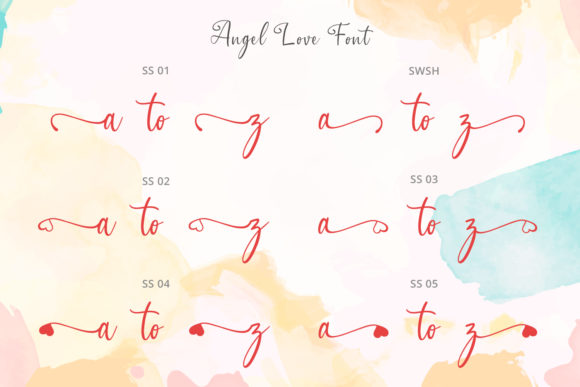 Angel Love Font
SS 01
a to z
SWSH
a to z
SS 02
a to z
SS 03
a to z
SS 04
a to z
SS 05
a to z